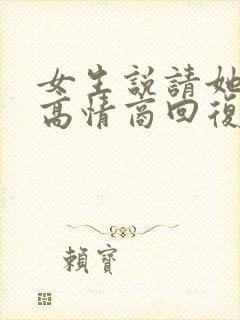 女生説請她
高情商回復
賴寶